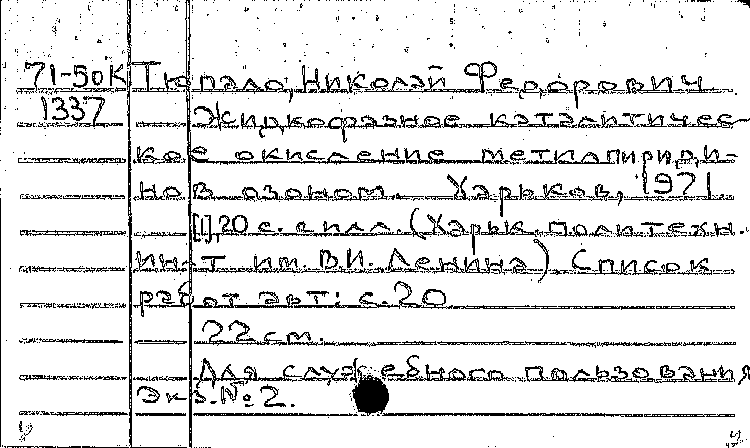 71-50К Тюпало, Николай Федорович
1337 Жидкофазное каталитичес-
кое окисление метилпириди-
нов озоном. Харьков, 1971.
[1], 20 с. с илл. (Харьк. политехн.
ин-т им. В.И. Ленина) Список
работ авт: с. 20
22 см.
Для служебного пользования
Экз. № 2.